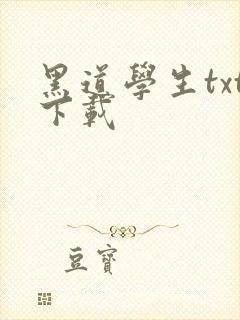 黑道學生txt
下載
豆寶